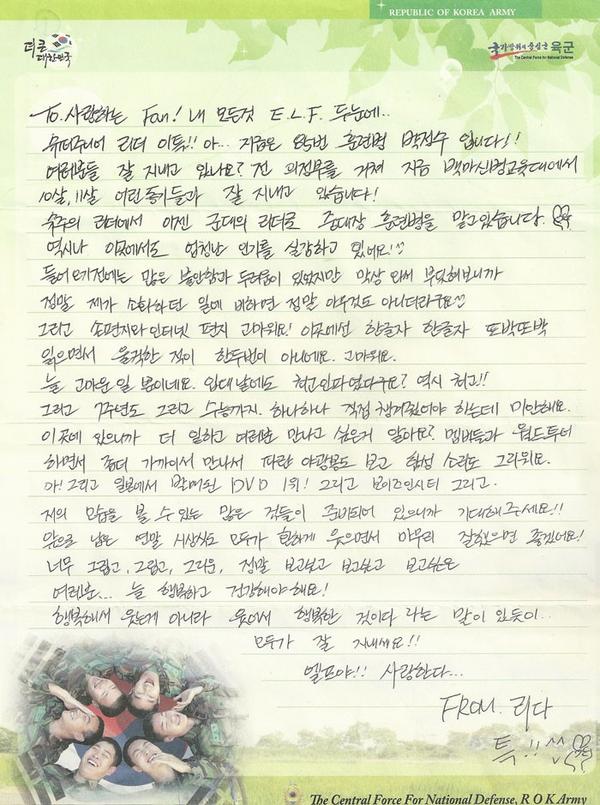 REPUBLIC OF KOREA ARMY
더 큰 대한민국
국가방위의 중심군 육군
The Central Force for National Defense
To. 사랑하는 Fan! 내 모든것 E.L.F. 두눈에..
슈퍼주니어 리더 이특!! 아... 지금은 85번 훈련병 박정수 입니다!!
여러분들 잘 지내고 있나요? 전 의정부를 거쳐 지금 백마신병교육대에서
10살, 11살 어린 동기들과 잘 지내고 있습니다!
슈주의 리더에서 이젠 군대의 리더로 중대장 훈련병을 맡고있습니다.
역시나 이곳에서도 엄청난 인기를 실감하고 있네요!
들어오기전에는 많은 불안함과 두려움이 있었지만 막상 와서 부딪혀보니까
정말 제가 소화하던 일에 비하면 정말 아무것도 아니더라구요
그리고 손편지와 인터넷 편지 고마워요! 이곳에선 한글자 한글자 또박또박
읽으면서 울컥한 적이 한두번이 아니에요. 고마워요.
늘 고마운일 뿐이네요. 입대날에도 최고인파였다구요? 역시 최고!!
그리고 7주년도 그리고 수능까지. 하나하나 직접 챙겨줬어야 하는데 미안해요.
이곳에 있으니까 더 일하고 여러분 만나고 싶은거 알아요? 멤버들과 월드투어
하면서 좀더 가까이서 만나서 파란 야광봉도 보고 함성 소리도 그리워요.
아! 그리고 일본에서 발매된 DVD 1위! 그리고 보이즈인시티 그리고.
저의 모습을 볼 수 있는 많은 것들이 준비되어 있으니까 기대해주세요!!
앞으로 남은 연말 시상식도 모두가 환하게 웃으면서 마무리 잘했으면 좋겠네요!
너무 그립고, 그립고, 그리운, 정말 보고싶고 보고싶고 보고싶은
여러분... 늘 행복하고 건강해야해요!
행복해서 웃는게 아니라 웃어서 행복한 것이다 라는 말이 있듯이..
모두가 잘 지내세요!!
엘프야!! 사랑한다...
FROM. 리다
특!!
The Central Force For National Defense, R O K Army